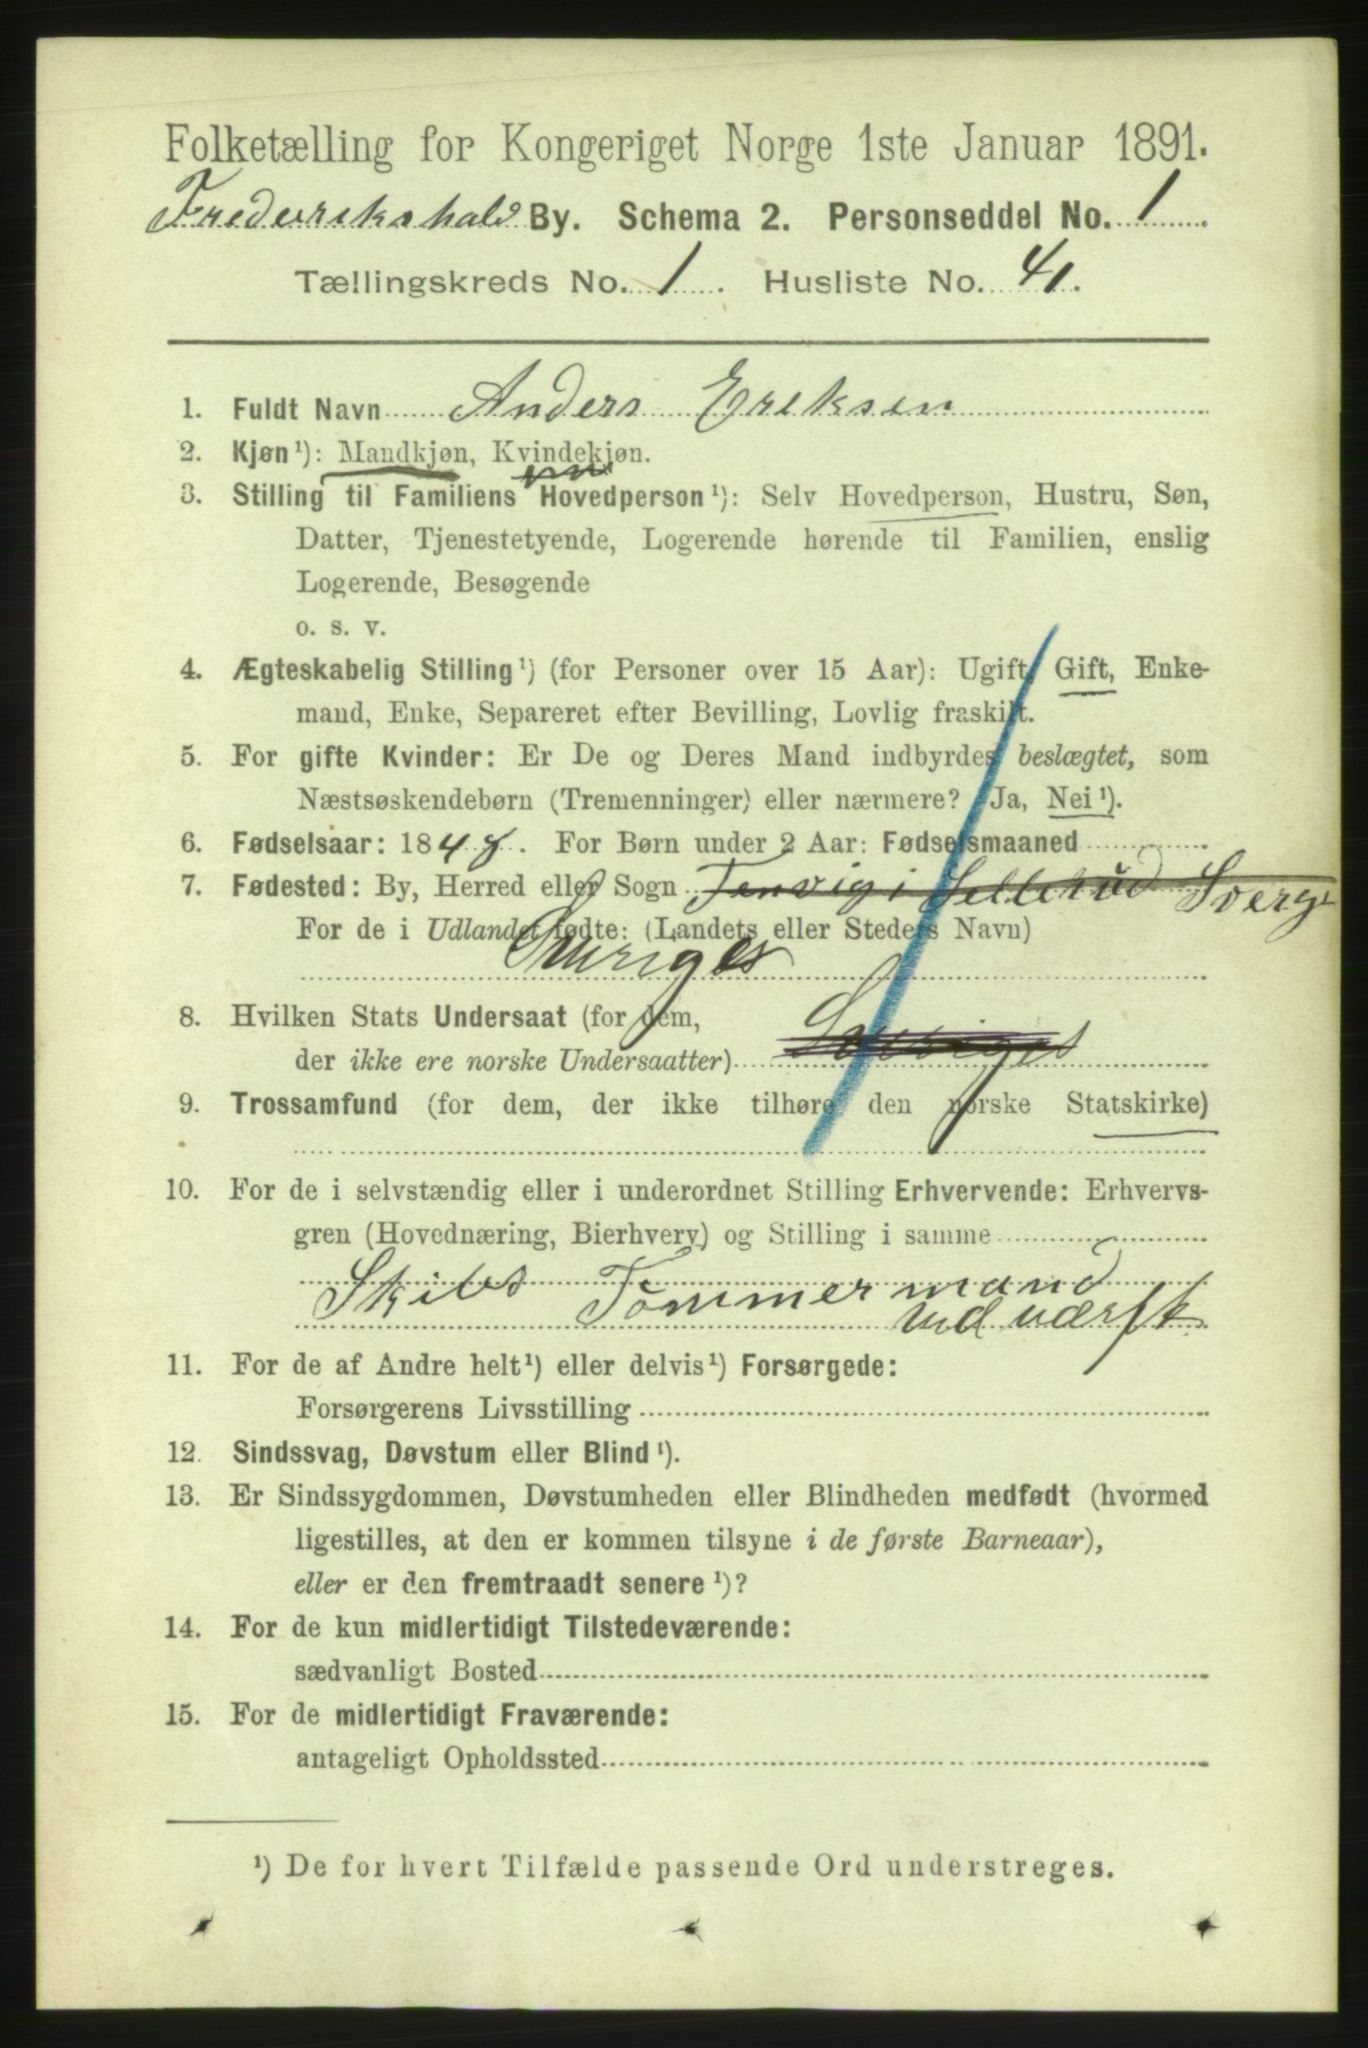 Folketælling for Kongeriget Norge 1ste Januar 1891.
Frederikshald By. Schema 2. Personseddel No. 1
Tællingskreds No. 1. Husliste No. 41.
1. Fuldt Navn Anders Eriksen
2. Kjøn¹): Mandkjøn, Kvindekjøn.
3. Stilling til Familiens Hovedperson¹): Selv Hovedperson, Hustru, Søn,
Datter, Tjenestetyende, Logerende hørende til Familien, enslig
Logerende, Besøgende
o. s. v.
4. Ægteskabelig Stilling¹) (for Personer over 15 Aar): Ugift, Gift, Enke-
mand, Enke, Separeret efter Bevilling, Lovlig fraskilt.
5. For gifte Kvinder: Er De og Deres Mand indbyrdes beslægtet, som
Næstsøskendebørn (Tremenninger) eller nærmere? Ja, Nei¹).
6. Fødselsaar: 1848. For Børn under 2 Aar: Fødselsmaaned
7. Fødested: By, Herred eller Sogn i Sverge
For de i Udlandet fødte: (Landets eller Stedets Navn)
8. Hvilken Stats Undersaat (for dem,
der ikke ere norske Undersaatter)
9. Trossamfund (for dem, der ikke tilhøre den norske Statskirke)
10. For de i selvstændig eller i underordnet Stilling Erhvervende: Erhvervs-
gren (Hovednæring, Bierhverv) og Stilling i samme
Skibs Tömmermand
ved værft
11. For de af Andre helt¹) eller delvis¹) Forsørgede:
Forsørgerens Livsstilling
12. Sindssvag, Døvstum eller Blind¹).
13. Er Sindssygdommen, Døvstumheden eller Blindheden medfødt (hvormed
ligestilles, at den er kommen tilsyne i de første Barneaar),
eller er den fremtraadt senere¹)?
14. For de kun midlertidigt Tilstedeværende:
sædvanligt Bosted
15. For de midlertidigt Fraværende:
antageligt Opholdssted
¹) De for hvert Tilfælde passende Ord understreges.